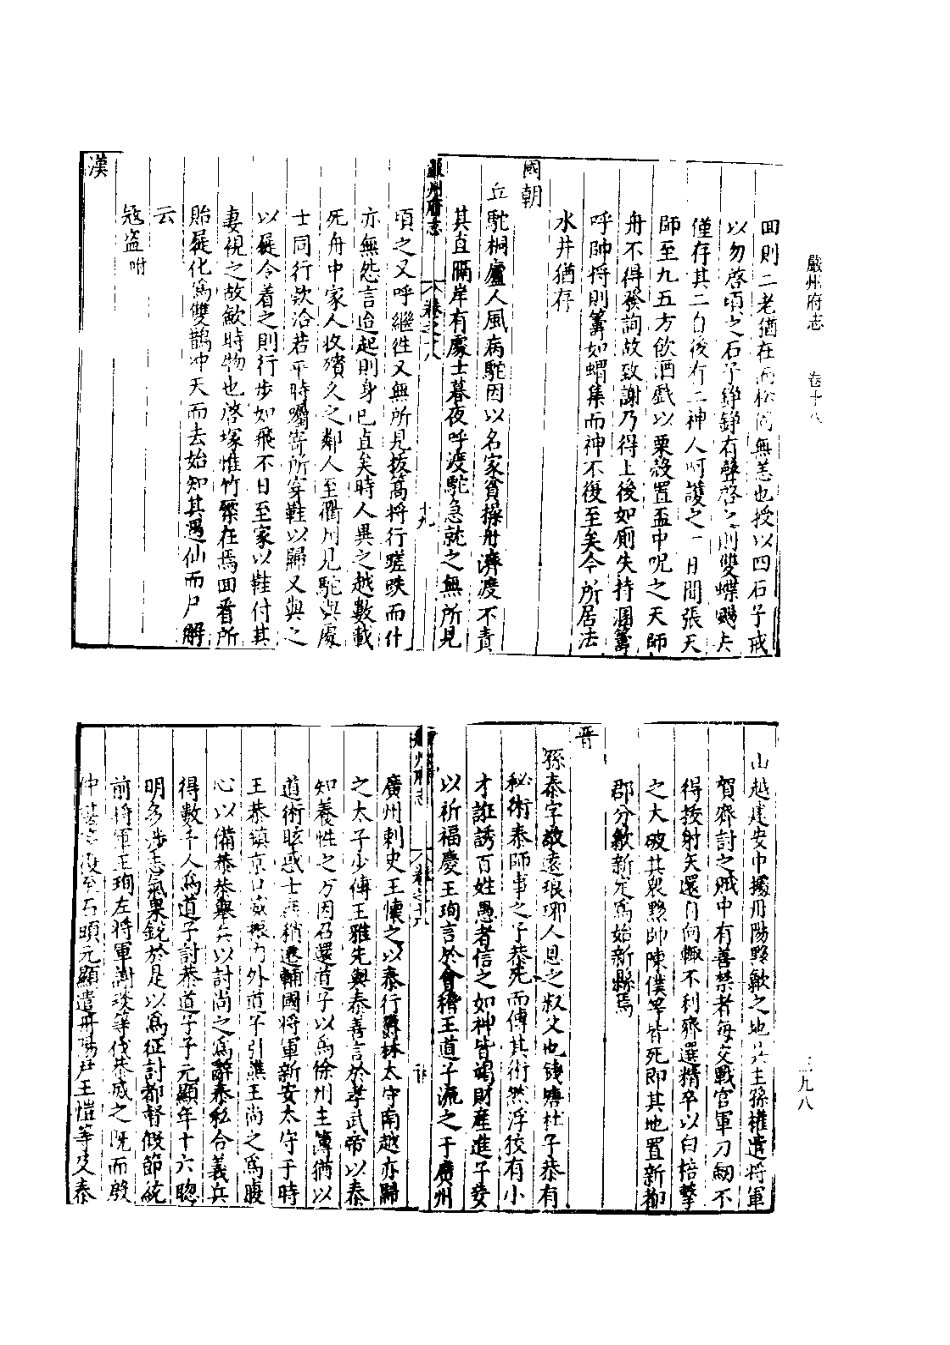 嚴州府志 卷十八
三九八
田則二老猶在兩松尚無恙也授以四石子戒
以勿啓頃之石子錚錚有聲啓之則雙蝶颺去
僅存其二自後有二神人呵護之一日間張天
師至九五方飲酒戲以栗殼置盃中呪之天師
舟不得發詢故致謝乃得上後如厠失持溷籌
呼帥將則籌如蝟集而神不復至矣今所居法
水井猶存
國朝
丘駝桐廬人風病駝因以名家貧操舟濟渡不責
其直隔岸有處士暮夜呼渡駝急就之無所見
嚴州府志 卷之十八 十九
頃之又呼繼徃又無所見拔篙將行蹉跌而仆
亦無怨言迨起則身已直矣時人異之越數載
死舟中家人收殯久之鄰人至衢州見駝與處
士同行欵洽若平時囑寄所穿鞋以歸又與之
以屣令着之則行步如飛不日至家以鞋付其
妻視之故歛時物也啓塚惟竹在焉回看所
貽屣化爲雙鵲冲天而去始知其遇仙而尸解
云
寇盗附
漢
山越建安中擾丹陽黟歙之地吳主孫權遣將軍
賀齊討之賊中有善禁者每交戰官軍刀劔不
得拔射矢還自向輙不利齊選精卒以白棓擊
之大破其衆黟帥陳僕等皆死即其地置新都
郡分歙新定爲始新縣焉
晋
孫泰字敬遠琅琊人恩之叔父也錢塘杜子恭有
秘術泰師事之子恭死而傳其術然浮狡有小
才誑誘百姓愚者信之如神皆竭財産進子女
以祈福慶王珣言於會稽王道子流之于廣州
州府志 卷之十八
廣州刺史王懷之以泰行鬱林太守南越亦歸
之太子少傅王雅先與泰善言於孝武帝以泰
知養性之方因召還道子以爲徐州主簿猶以
道術眩惑士庶稍遷輔國將軍新安太守于時
王恭鎮京口威振内外道子引譙王尚之爲腹
心以備恭恭舉兵以討尚之爲辭泰私合義兵
得數千人爲道子討恭道子子元顯年十六聰
明多涉志氣果銳於是以爲征討都督假節統
前將軍王珣左將軍謝琰等伐恭滅之既而殷
仲堪等復至石頭元顯遣丹陽尹王愷等及泰